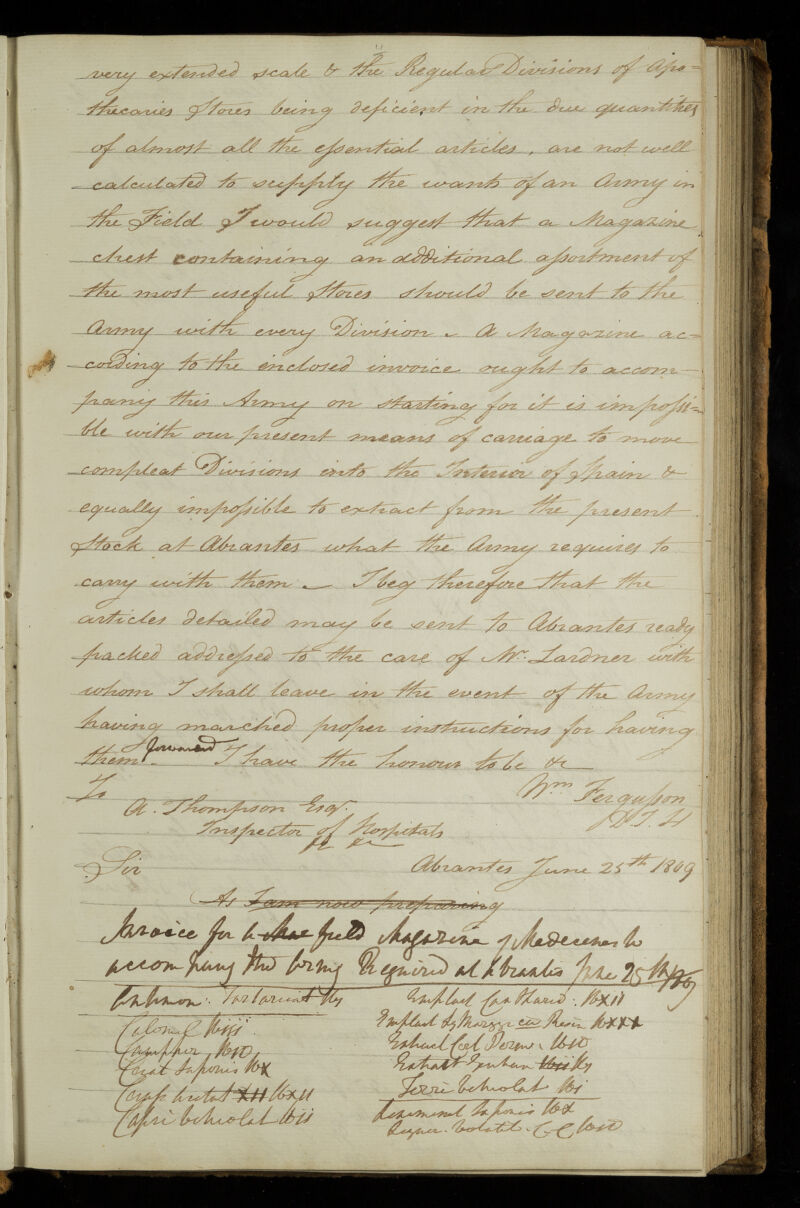 very extended scale & the Regular Divisions of Apo=
thecaries Stores being deficient in the due quantities
of almost all the essential articles, are not well
calculated to supply the wants of an Army in
the Field I would suggest that a Magazine
chest containing an additional assortment of
the most useful Stores should be sent to the
Army with every Division - A Magazine ac=
cording to the enclosed invoice ought to accom-
pany this Army on starting for it is impossi=
ble with our present means of carriage to move
compleat Divisions into the Interior of Spain &
equally impossible to extract from the present
Stock at Abrantes what the Army requires to
carry with them - I beg therefore that the
articles detailed may be sent to Abrantes ready
packed addressed to the care of Mr. Lardner with
whom I shall leave in the event of the Army
having marched proper instructions for having
them forwarded - I have the honour to be &c
To Wm Fergusson
A. Thompson Esqr. D I H
Inspector of Hospitals
&c &c
Sir Abrantes June 25th 1809
As I am now preparing
Invoice for a field Magazine of Medecenes to
accompany the Army Required at Abrantes June 25th 1809
Antimon: Tartarizat Emplast Cantharid. lbxii
Calomel lbiii Emplast Lythargyr cu Resin lbxxx
Camphor Extract
Cerat Saponis lbx Extract
xii lbxii Ferri Vitriolat lbi
Cupri Vitriolat lbii Linament Saponis lbx
Liquor. Volatil. C C